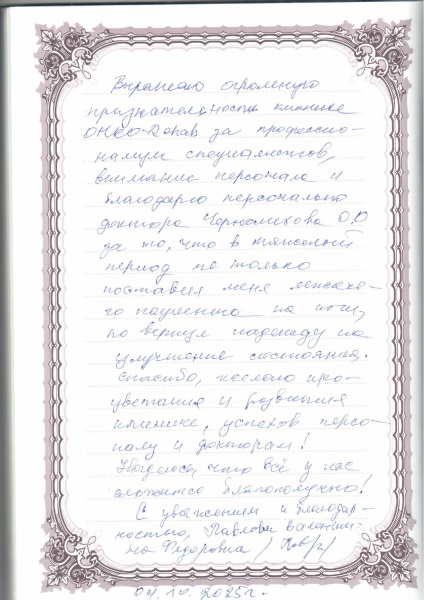 Выражаю огромную
признательность клинике
ОНКО-Rehab за профессио-
нализм специалистов,
внимание персонала и
благодарю персонально
доктора Черномехова О.О
за то, что в тяжелый
период не только
поставил меня лежаче-
го пациента на ноги,
но вернул надежду на
улучшение состояния.
Спасибо, желаю про-
цветания и развития
клинике, успехов персо-
налу и докторам!
Надеюсь, что всё у нас
сложится благополучно!
С уважением и благодар-
ностью, Павлова Валенти-
на Федоровна /
04.10.2025г.